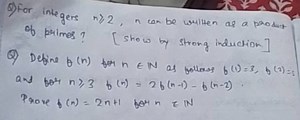 5) for integers n≥2, n can be written as a product
of primes? [show by strong induction]
Q) Define b(n) for n ∈ N as follows b(1)=3, b(2)=5
and for n≥3 b(n) = 2b(n-1) - b(n-2).
Prove b(n) = 2n+1 for n ∈ N